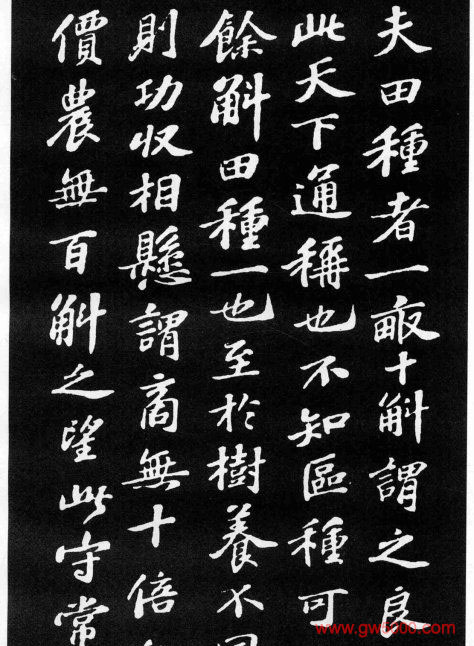 夫田種者一畝十斛謂之良
此天下通稱也不知區種可
餘斛田種一也至於樹養不
則功収相懸謂商無十倍
價農無百斛之望此守常
www.gw5000.com